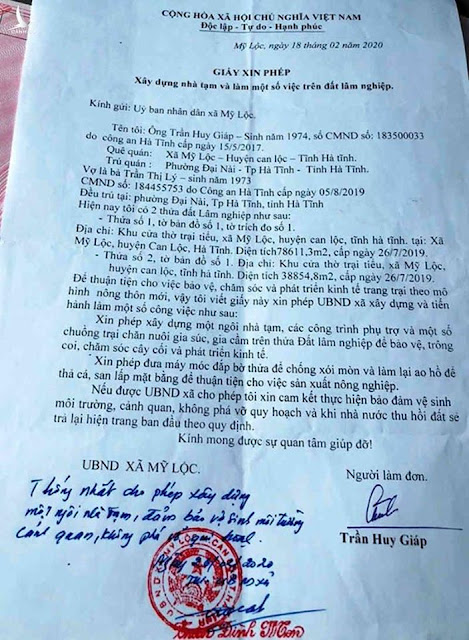 CỘNG HÒA XÃ HỘI CHỦ NGHĨA VIỆT NAM
Độc lập - Tự do - Hạnh phúc
Mỹ Lộc, ngày 18 tháng 02 năm 2020
GIẤY XIN PHÉP
Xây dựng nhà tạm và làm một số việc trên đất lâm nghiệp.
Kính gửi: Uỷ ban nhân dân xã Mỹ Lộc.
Tên tôi: Ông Trần Huy Giáp – Sinh năm 1974, số CMND số: 183500033
do công an Hà Tĩnh cấp ngày 15/5/2017.
Quê quán: Xã Mỹ Lộc – Huyện can lộc – Tĩnh Hà Tĩnh.
Trú quán : Phường Đại Nài - Tp Hà Tĩnh - Tỉnh Hà Tĩnh.
Vợ là bà Trần Thị Lý – sinh năm 1973
CMND số: 184455753 do Công an Hà Tĩnh cấp ngày 05/8/2019
Đều trú tại: phường Đại Nài, Tp Hà Tĩnh, tỉnh Hà Tĩnh
Hiện nay tôi có 2 thửa đất Lâm nghiệp như sau:
- Thửa số 1, tờ bản đồ số 1, tờ trích đo số 1.
Địa chỉ: Khu cửa thờ trại tiểu, xã Mỹ Lộc, huyện can lộc, tĩnh hà tĩnh. tại: Xã
Mỹ Lộc, huyện Can Lộc, Hà Tĩnh. Diện tích78611,3m2, cấp ngày 26/7/2019.
- Thửa số 2, tờ bản đồ số 1. Địa chỉ: Khu cửa thờ trại tiểu, xã Mỹ Lộc,
huyện can lộc, tĩnh hà tĩnh. Diện tích 38854,8m2, cấp ngày 26/7/2019.
Để thuận tiện cho việc bảo vệ, chăm sóc và phát triển kinh tế trang trại theo mô
hình nông thôn mới, vậy tôi viết giấy này xin phép UBND xã xây dựng và tiến
hành làm một số công việc như sau:
Xin phép xây dựng một ngôi nhà tạm, các công trình phụ trợ và một số
chuồng trại chăn nuôi gia súc, gia cầm trên thửa Đất lâm nghiệp để bảo vệ, trông
coi, chăm sóc cây cối và phát triển kinh tế.
Xin phép đưa máy móc đắp bờ thửa để chống xói mòn và làm lại ao hồ để
thả cá, san lấp mặt bằng để thuận tiện cho việc sản xuất nông nghiệp.
Nếu được UBND xã cho phép tôi xin cam kết thực hiện bảo đảm vệ sinh
môi trường, cảnh quan, không phá vỡ quy hoạch và khi nhà nước thu hồi đất sẽ
trả lại hiện trang ban đầu theo quy định.
Kính mong được sự quan tâm giúp đỡ!
UBND XÃ MỸ LỘC.
Người làm đơn.
Thống nhất cho phép xây dựng
một ngôi nhà tạm, đảm bảo vệ sinh môi trường
cảnh quan, không phá vỡ quy hoạch
Trần Huy Giáp
Trần Đình